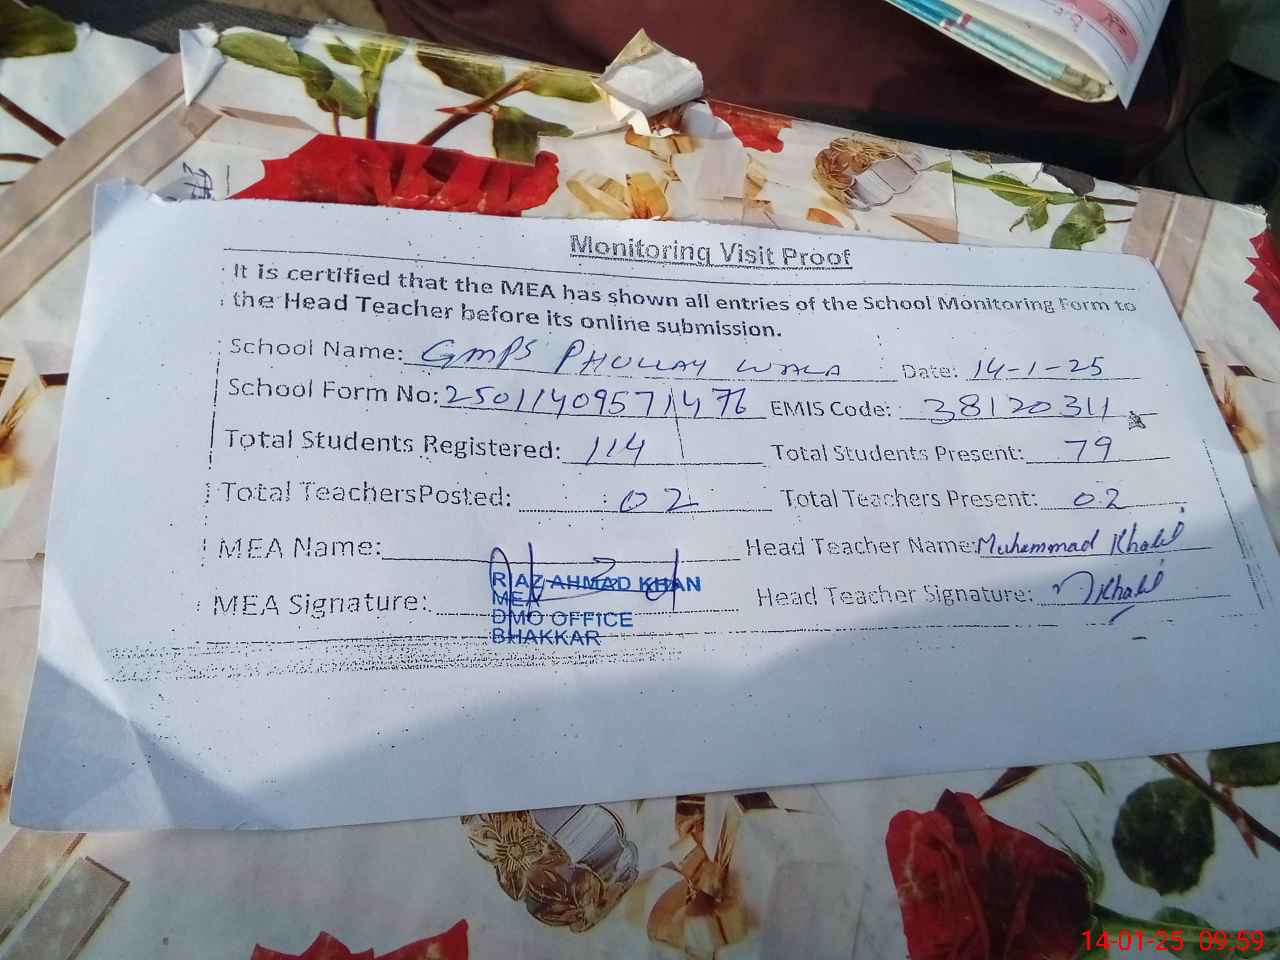 Monitoring Visit Proof
It is certified that the MEA has shown all entries of the School Monitoring Form to
the Head Teacher before its online submission.
School Name: GMPS PHULLAY WALA Date: 14-1-25
School Form No: 25011409571476 EMIS Code: 38120311
Total Students Registered: 114 Total Students Present: 79
Total TeachersPosted: 02 Total Teachers Present: 02
MEA Name: Head Teacher Name: Muhammad Khalil
RIAZ AHMAD KHAN
MEA Signature: MEA Head Teacher Signature: Khalil
DMO OFFICE
BHAKKAR
14-01-25 09:59